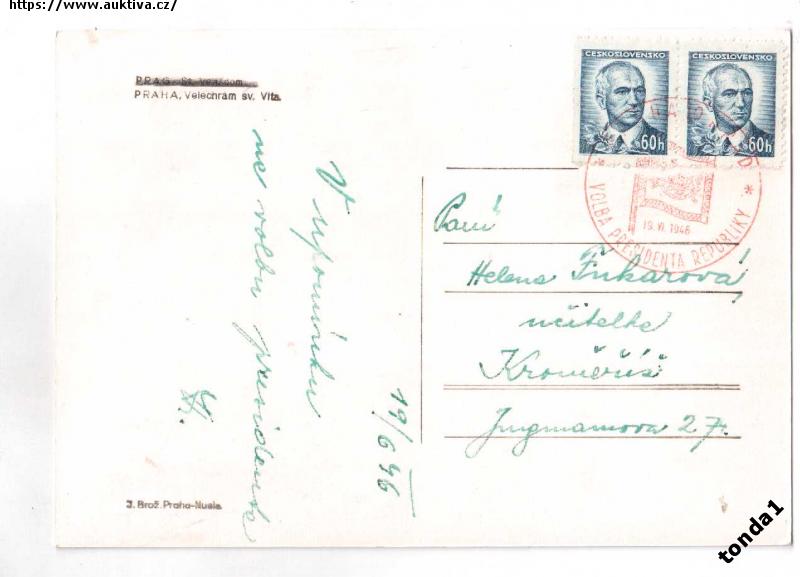 https://www.auktiva.cz/
PRAG, St. Veitsdom.
PRAHA, Velechrám sv. Víta.
V upomínku
na volbu presidenta
19/6 46
J. Brož, Praha-Nusle
ČESKOSLOVENSKO
60h
ČESKOSLOVENSKO
60h
19. VI. 1946
VOLBA PRESIDENTA REPUBLIKY
Paní
Helena Fukarová,
učitelka
Kroměříž
Jungmannova 27.
tonda1